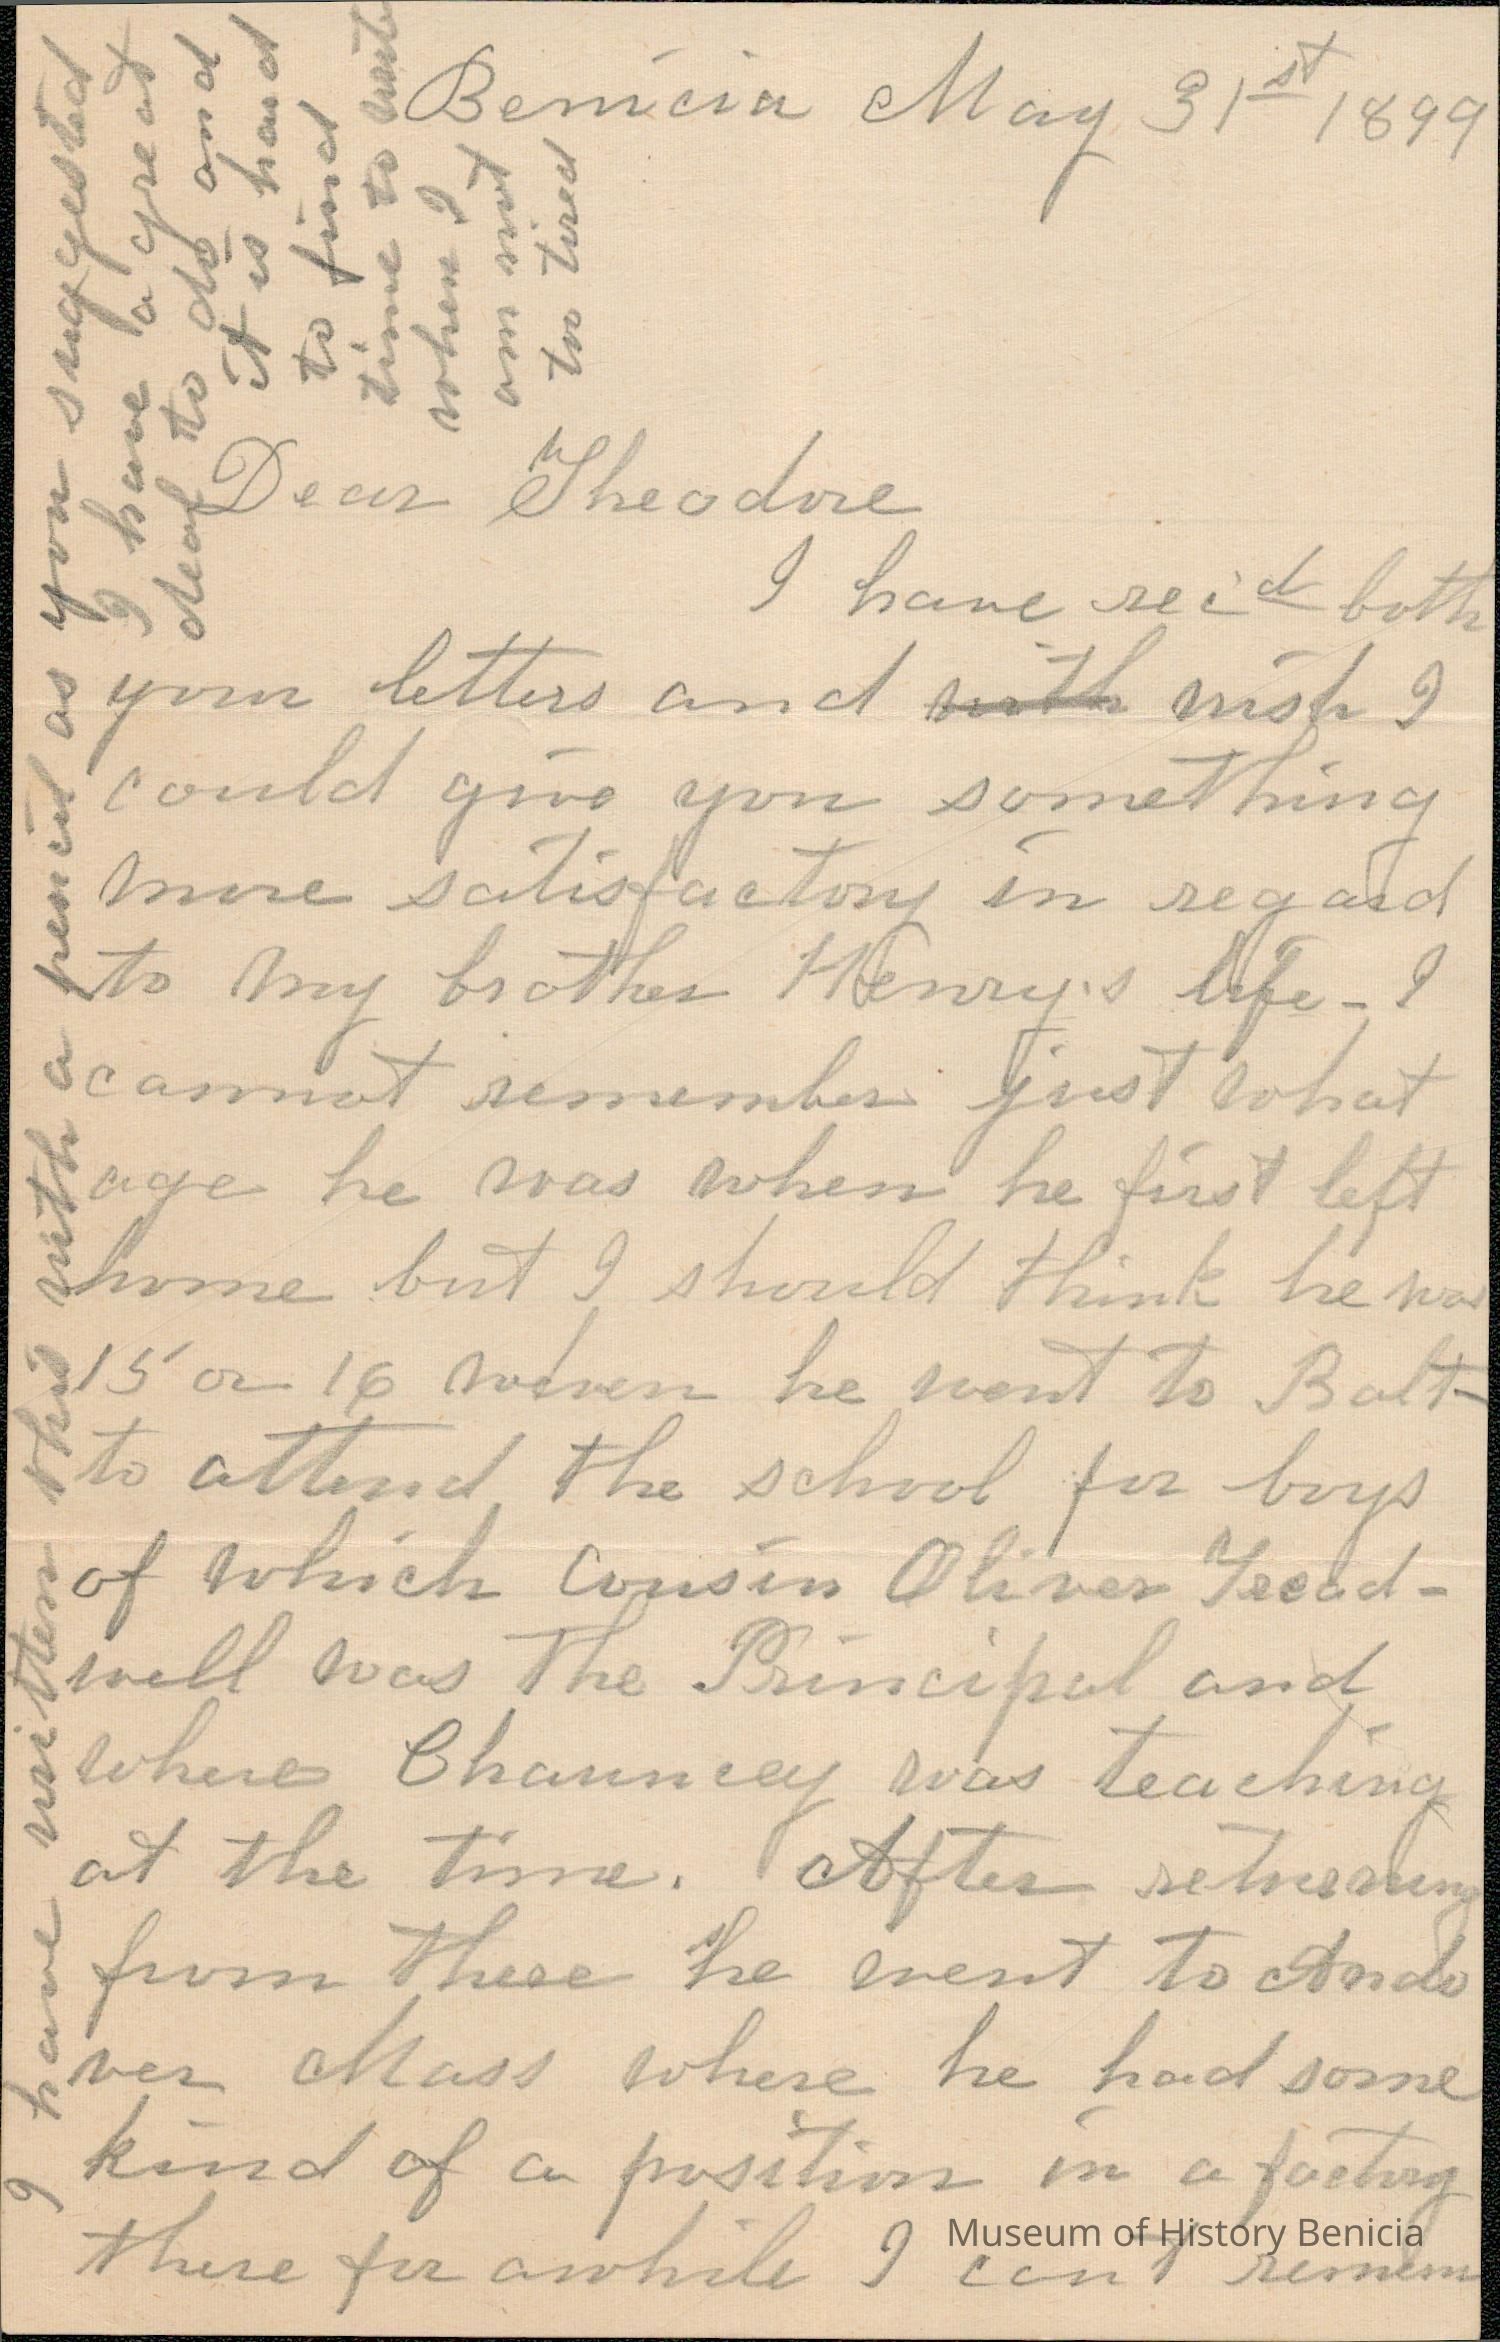 Benicia May 31st 1899
Dear Theodore
I have recd both
your letters and with wish I
could give you something
more satisfactory in regard
to my brother Henry's life - I
cannot remember just what
age he was when he first left
home but I should think he was
15 or 16 when he went to Balt-
to attend the school for boys
of which Cousin Oliver Tread-
well was the Principal and
where Chauncey was teaching
at the time. After returning
from there he went to Ando
ver Mass where he had some
kind of a position in a factory
there for awhile I can't remem
I have written this with a pencil as you suggested
I have a great
deal to do and
it is hard
to find
time to write
when I
am not
too tired
Museum of History Benicia